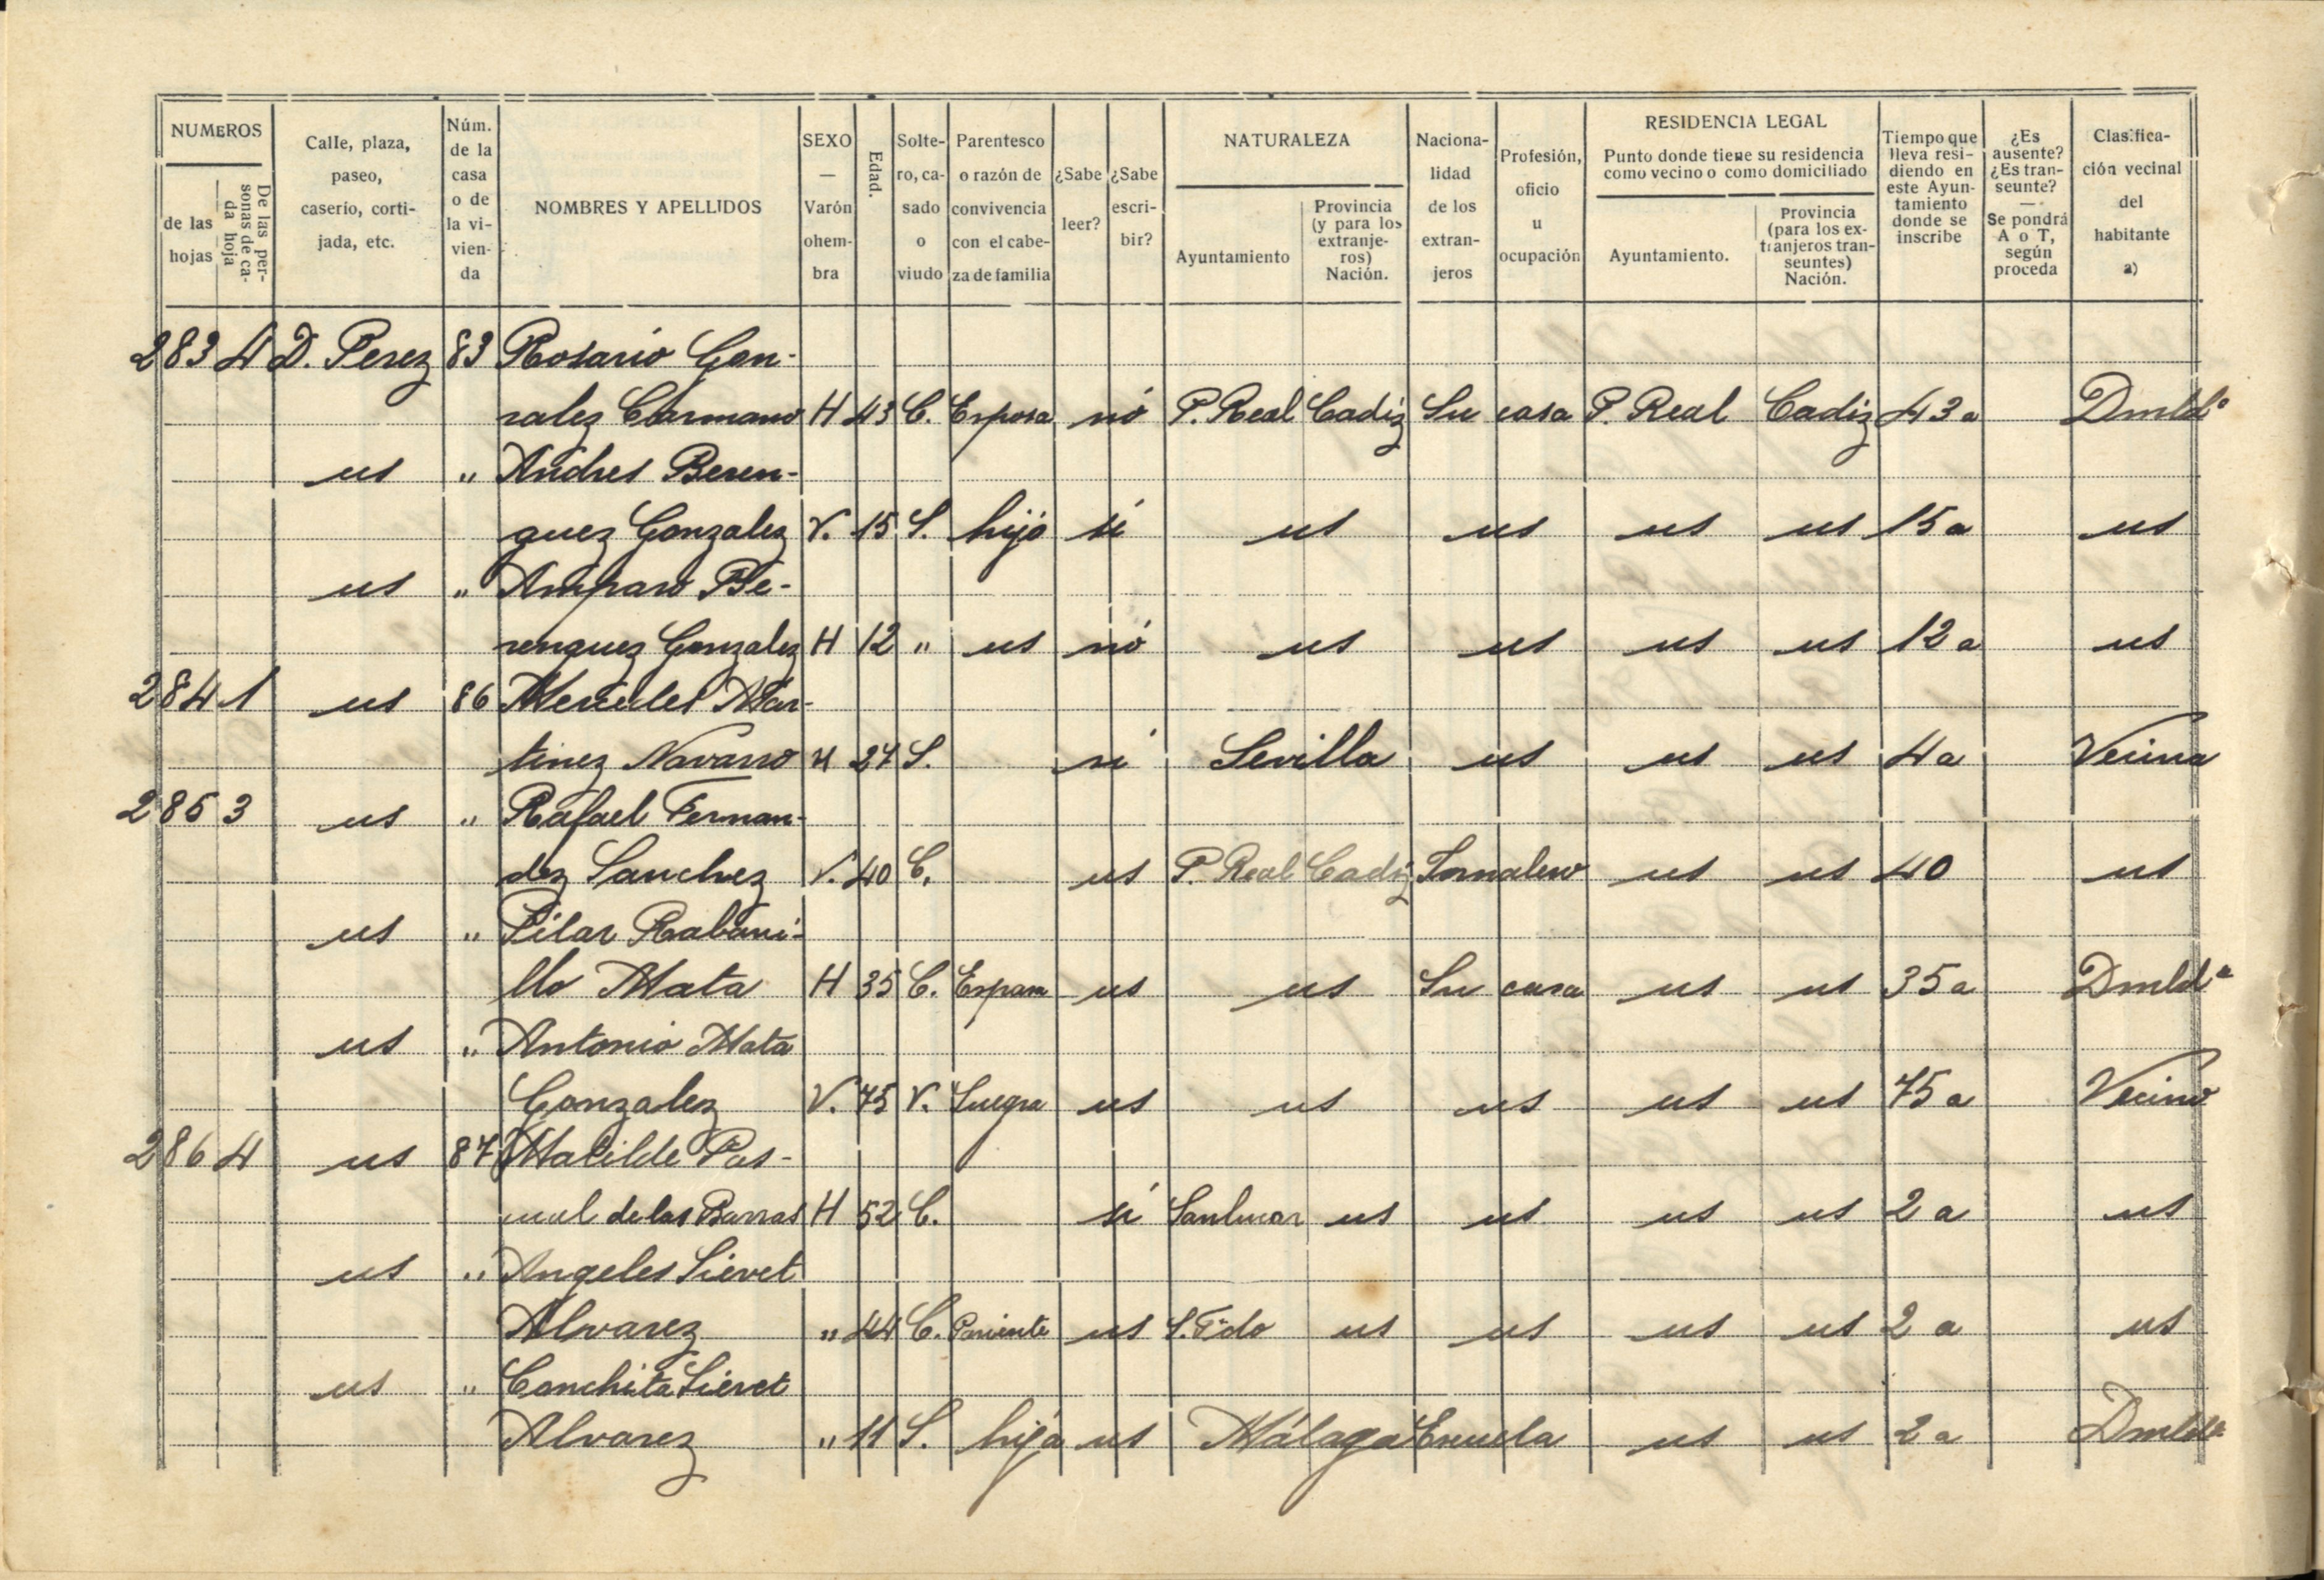 NUMEROS
de las hojas
De las personas de cada hoja
Calle, plaza, paseo, caserío, cortijada, etc.
Núm. de la casa o de la vivienda
NOMBRES Y APELLIDOS
SEXO — Varón o hembra
Edad.
Soltero, casado o viudo
Parentesco o razón de convivencia con el cabeza de familia
¿Sabe leer?
¿Sabe escribir?
NATURALEZA
Ayuntamiento
Provincia (y para los extranjeros) Nación.
Nacionalidad de los extranjeros
Profesión, oficio u ocupación
RESIDENCIA LEGAL
Punto donde tiene su residencia como vecino o como domiciliado
Ayuntamiento.
Provincia (para los extranjeros transeuntes) Nación.
Tiempo que lleva residiendo en este Ayuntamiento donde se inscribe
¿Es ausente? ¿Es transeunte? — Se pondrá A o T, según proceda
Clasificación vecinal del habitante a)
283 4 D. Perez 83 Rosario Gon-
zalez Carmano H 43 C. Esposa nó P. Real Cadiz Su casa P. Real Cadiz 43 a Dmldª
us " Andres Beren-
guez Gonzalez V. 15 S. hijo si us us us us 15 a us
us " Amparo Be-
renguez Gonzalez H 12 " us nó us us us us 12 a us
284 1 us 86 Mercedes Mar-
tinez Navarro H 27 S. si Sevilla us us us 4 a Vecina
285 3 us " Rafael Fernan-
dez Sanchez V. 40 C. us P. Real Cadiz Jornalero us us 40 us
us " Pilar Rabani-
llo Mata H 35 C. Esposa us us Su casa us us 35 a Dmldª
us " Antonio Mata
Gonzalez V. 75 V. Suegra us us us us us 75 a Vecino
286 4 us 87 Matilde Pas-
cual de las Barras H 52 C. si Sanlucar us us us us 2 a us
us " Angeles Sievet
Alvarez " 44 C. Pariente us S. Fdo us us us us 2 a us
us " Conchita Sievet
Alvarez " 11 S. hija us Málaga Escuela us us 2 a Dmldª